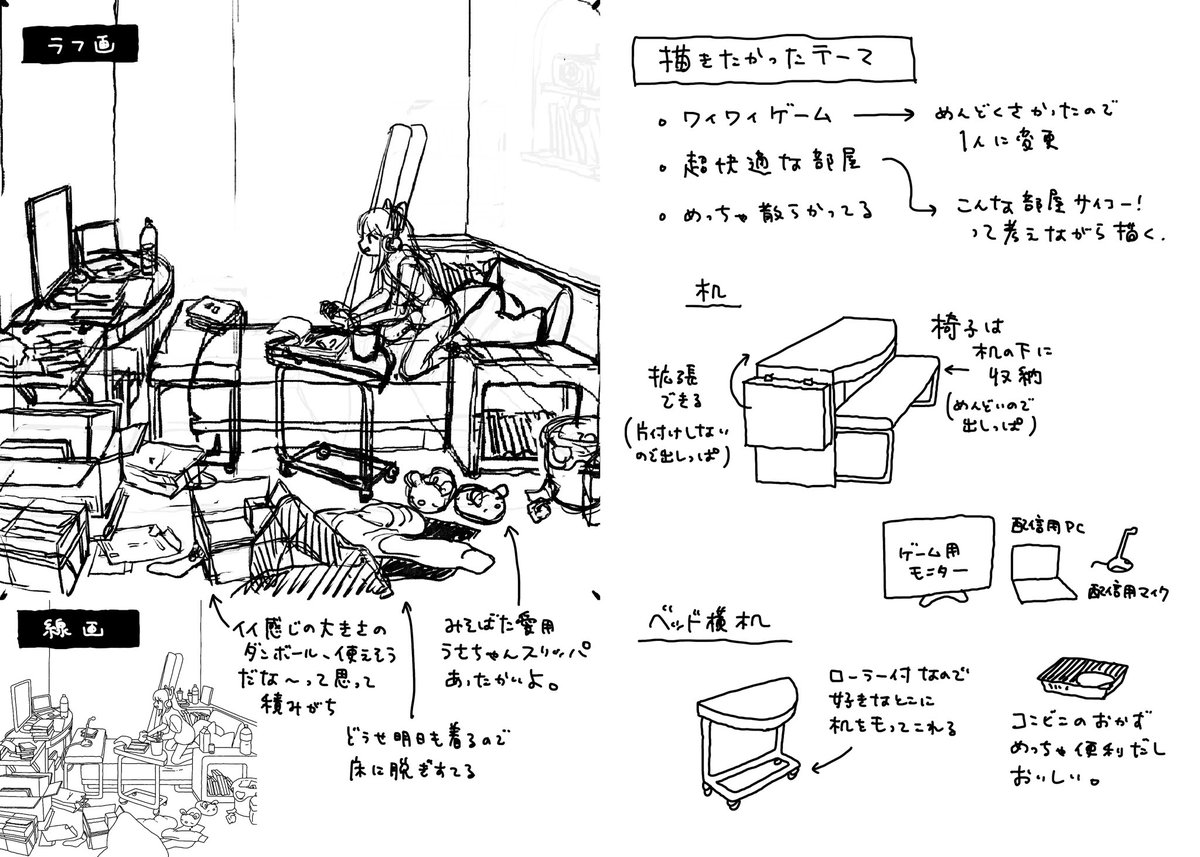 ラフ画
線画
イイ感じの大きさの
ダンボール、使えそう
だな〜って思って
積みがち
どうせ明日も着るので
床に脱ぎすてる
みそばた愛用
うさちゃんスリッパ
あったかいよ。
描きたかったテーマ
ワイワイゲーム → めんどくさかったので
1人に変更
超快適な部屋
めっちゃ散らかってる
こんな部屋サイコー!
って考えながら描く.
机
拡張
できる
(片付けしない
ので出しっぱ)
椅子は
机の下に
収納
(めんどいので
出しっぱ)
ゲーム用
モニター
配信用PC
配信用マイク
ベッド横机
ローラー付なので
好きなとこに
机をもってこれる
コンビニのおかず
めっちゃ便利だし
おいしい。